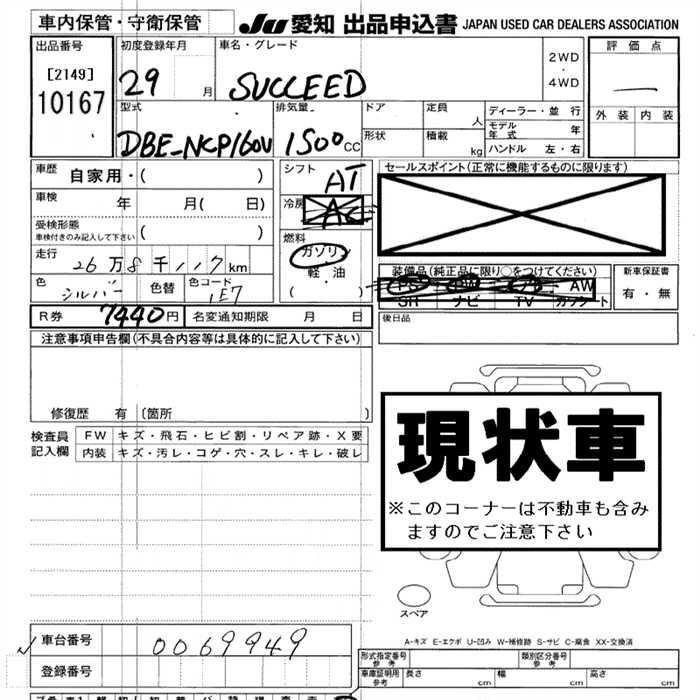 車内保管・守衛保管 JU 愛知 出品申込書 JAPAN USED CAR DEALERS ASSOCIATION
出品番号 初度登録年月 車名・グレード 2WD ・ 4WD 評価点
[2149] 29 月 SUCCEED —
10167 型式 排気量 ドア 定員 人 ディーラー・並行 外装 内装
モデル年式 年
DBE-NCP160V 1500 CC 形状 積載 kg ハンドル 左・右
車歴 自家用・( ) シフト AT セールスポイント(正常に機能するものに限ります)
車検 年 月( 日) 冷房 AC
受検形態 ( )
車検付きのみ記入して下さい
燃料 ガソリン
走行 26万8千117km 軽・油
装備品(純正品に限り○をつけてください) 新車保証書
色 シルバー 色替 色コード 1E7 ( )
PS PW AW 有・無
SR ナビ TV カワシート
R券 7440円 名変通知期限 月 日 後日品
注意事項申告欄(不具合内容等は具体的に記入して下さい)
修復歴 有 〔箇所 〕
検査員 FW キズ・飛石・ヒビ割・リペア跡・X要
記入欄 内装 キズ・汚レ・コゲ・穴・スレ・キレ・破レ
現状車
※このコーナーは不動車も含み
ますのでご注意下さい
スペア
A-キズ E-エクボ U-凹み W-補修跡 S-サビ C-腐食 XX-交換済
車台番号 0069949
形式指定番号 参考 類別区分番号 参考
登録番号
車庫証明用 参考 長さ cm 幅 cm 高さ cm